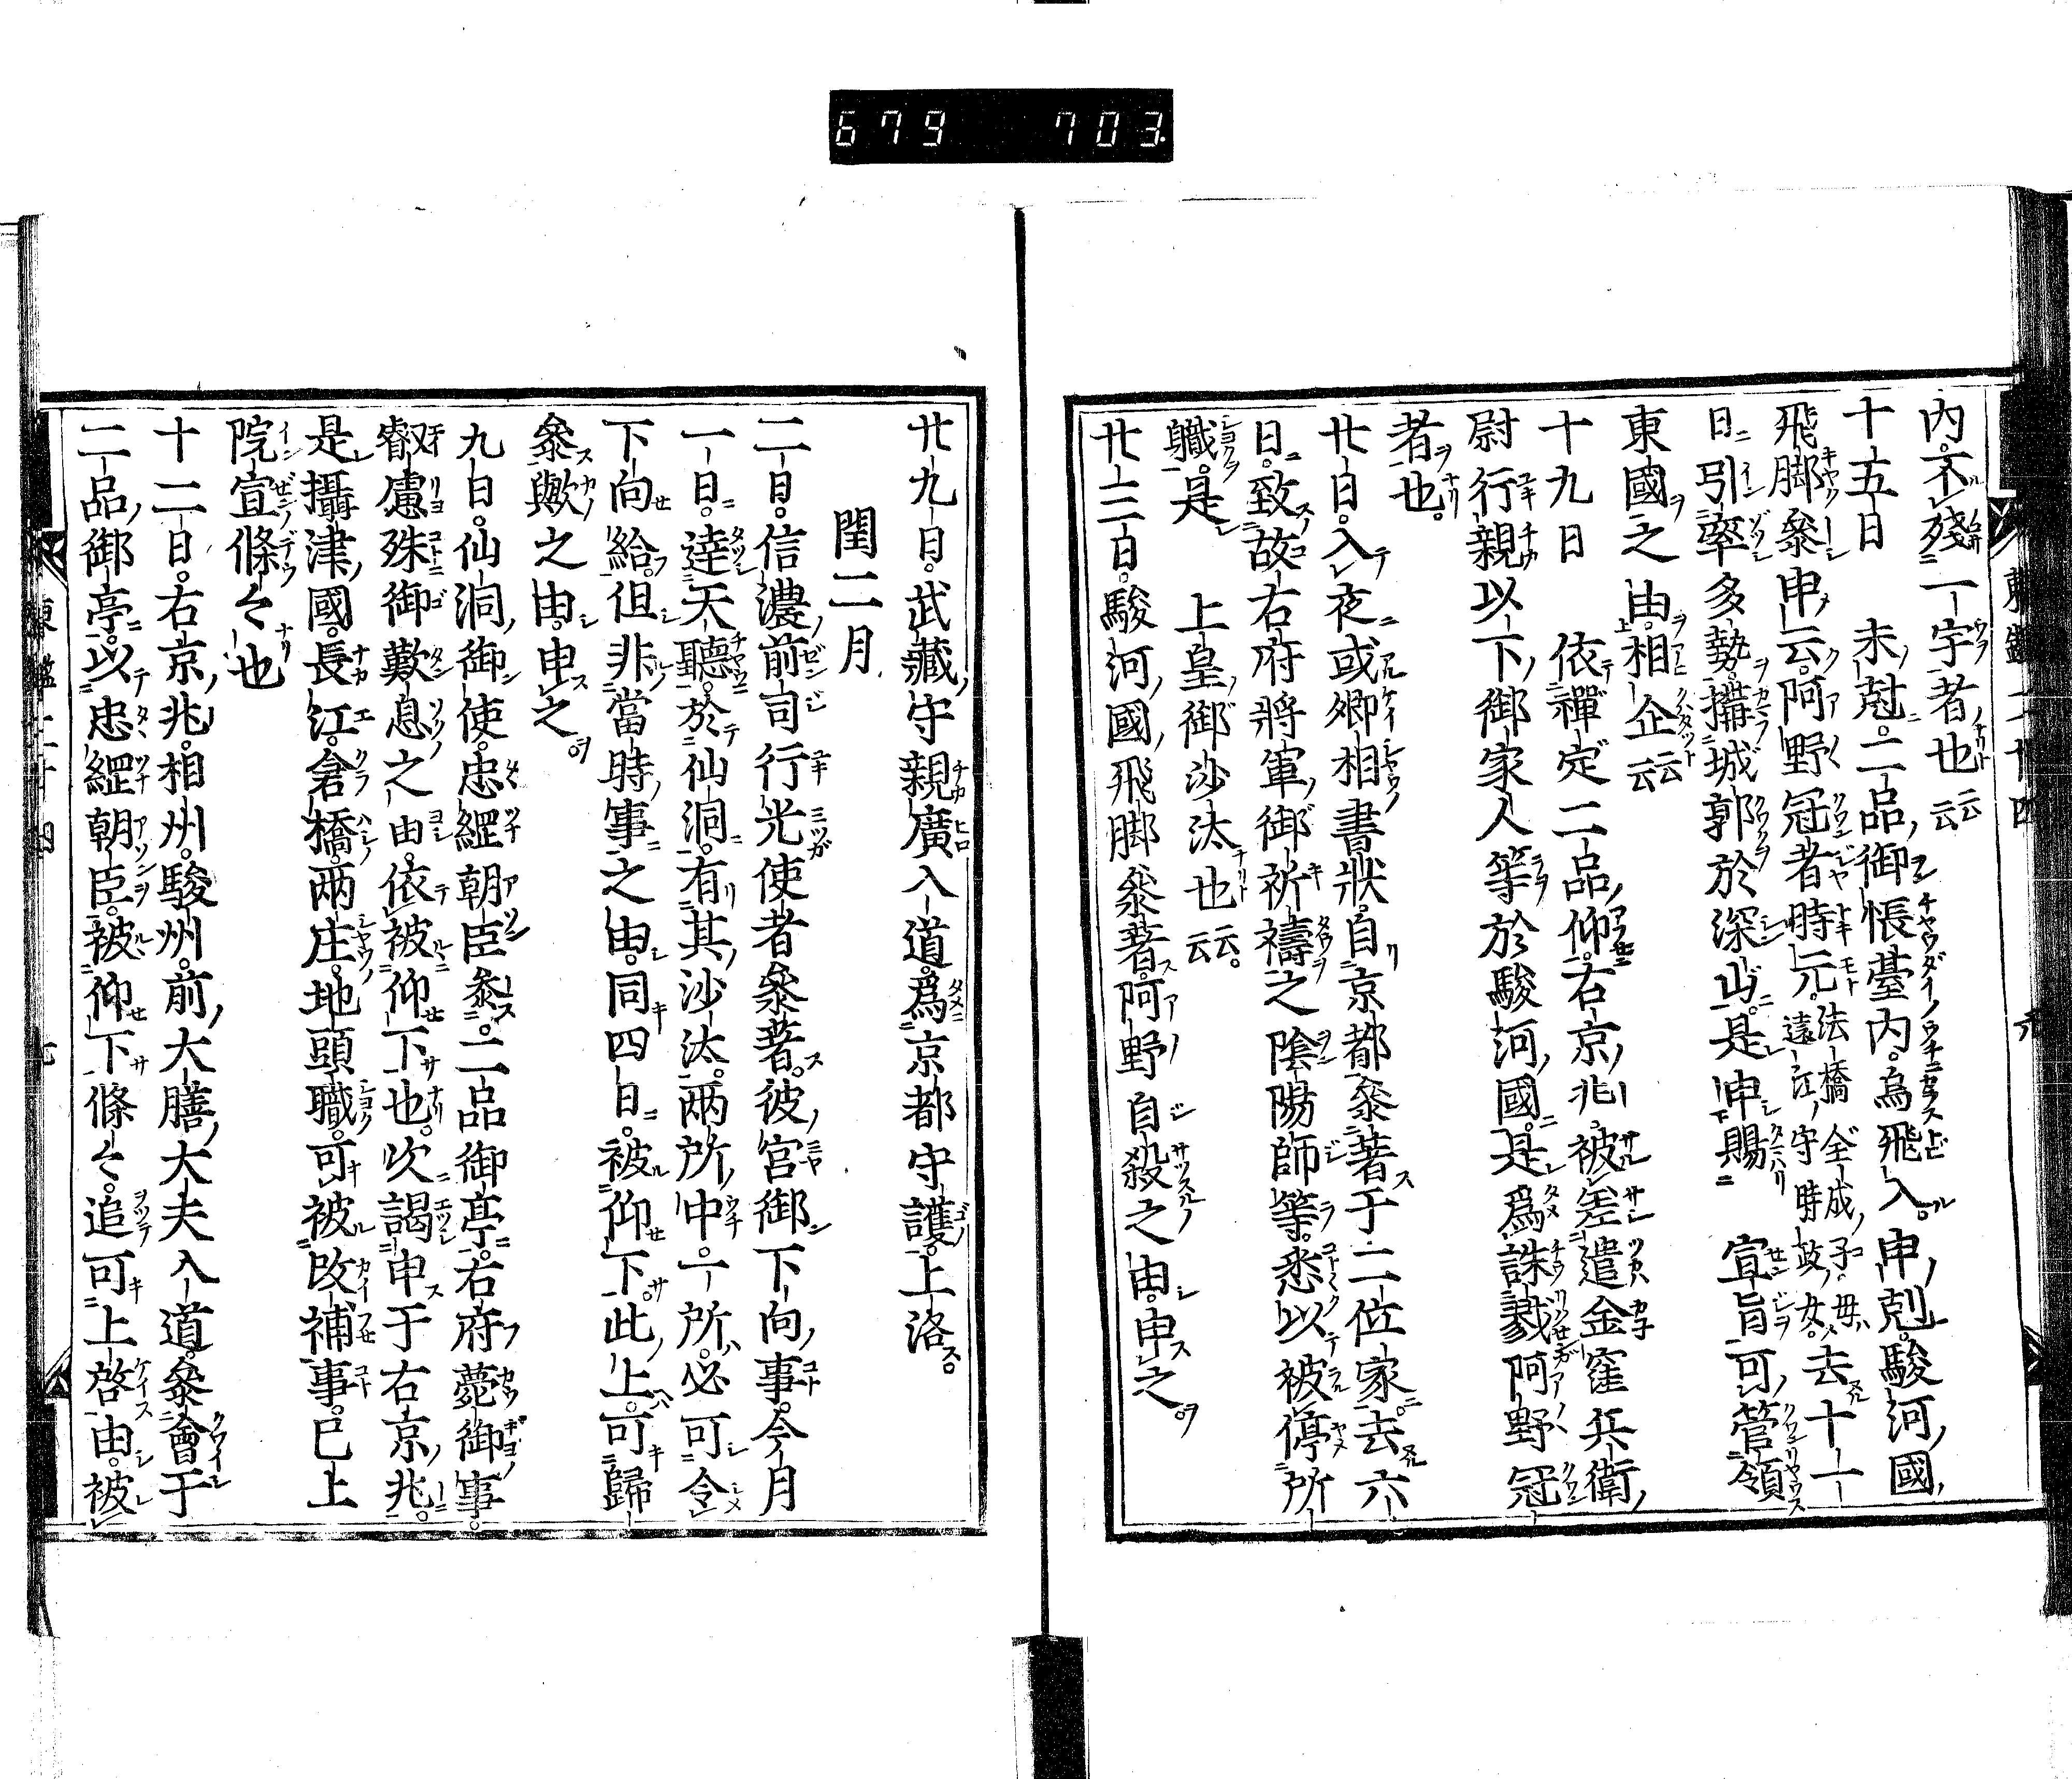 679 703
内。不殘一宇者也云云
十五日 未尅。二品御帳臺内。烏飛入。申剋。駿河國
飛脚參申云。阿野冠者時元。法橋全成子。母遠江守時政女。去十一
日引率多勢。搆城郭於深山。是申賜 宣旨可管領
東國之由。相企云云
十九日 依禪定二品仰。右京兆。被差遣金窪兵衛
尉行親以下御家人等於駿河國。是爲誅戮阿野冠
者也。
廿日。入夜或卿相書狀。自京都參著于二位家。去六
日。致故右府將軍御祈禱之陰陽師等。悉以被停所
職。是 上皇御沙汰也云云。
廿三日。駿河國飛脚參著。阿野自殺之由。申之。
廿九日。武藏守親廣入道。爲京都守護。上洛。
閏二月
二日。信濃前司行光使者參著。彼宮御下向事。今月
一日。達天聽。於仙洞。有其沙汰。兩所中。一所。必可令
下向給。但非當時事之由。同四日。被仰下。此上。可歸
參歟之由。申之。
九日。仙洞御使。忠綱朝臣參。二品御亭。右府薨御事。
叡慮殊御歎息之由。依被仰下也。次謁申于右京兆。
是攝津國。長江。倉橋。兩庄。地頭職。可被改補事。已上
院宣條々也
十二日。右京兆。相州。駿州。前大膳大夫入道。參會于
二品御亭。以忠綱朝臣。被仰下條々。追可上啓由。被